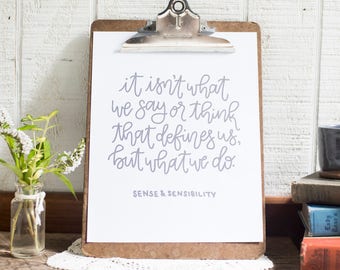 it isn't what
we say or think
that defines us,
but what we do.
SENSE & SENSIBILITY